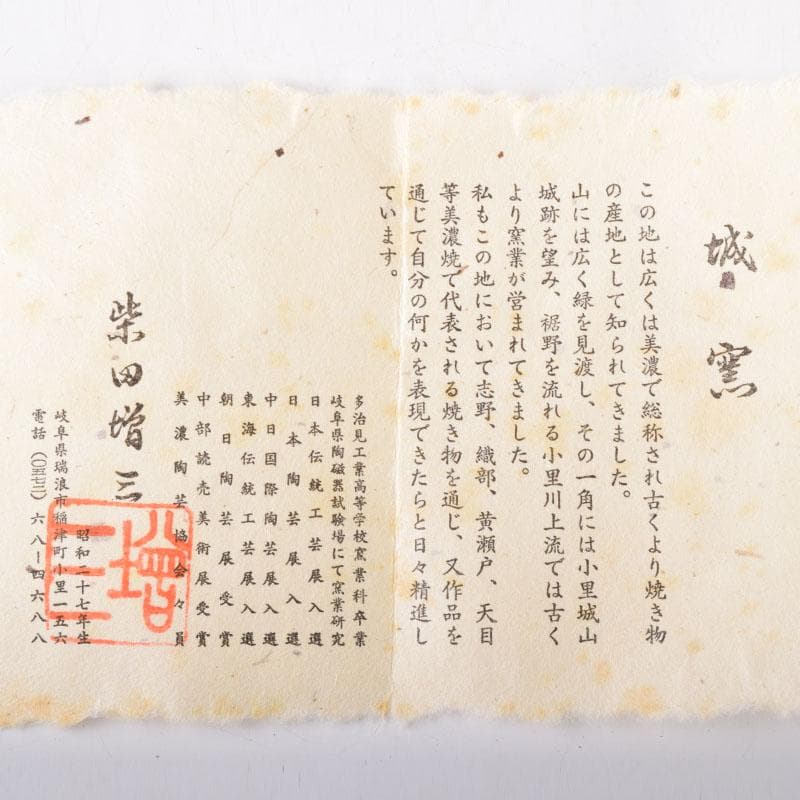 城窯
この地は広くは美濃で総称され古くより焼き物
の産地として知られてきました。
山には広く緑を見渡し、その一角には小里城山
城跡を望み、裾野を流れる小里川上流では古く
より窯業が営まれてきました。
私もこの地において志野、織部、黄瀬戸、天目
等美濃焼で代表される焼き物を通じ、又作品を
通じて自分の何かを表現できたらと日々精進し
ています。
多治見工業高等学校窯業科卒業
岐阜県陶磁器試験場にて窯業研究
日本伝統工芸展入選
日本陶芸展入選
中日国際陶芸展入選
東海伝統工芸展入選
朝日陶芸展受賞
中部読売美術展受賞
美濃陶芸協会々員
柴田増三
昭和二十七年生
岐阜県瑞浪市稲津町小里一五六
電話（〇五七二）六八－四六八八
増三